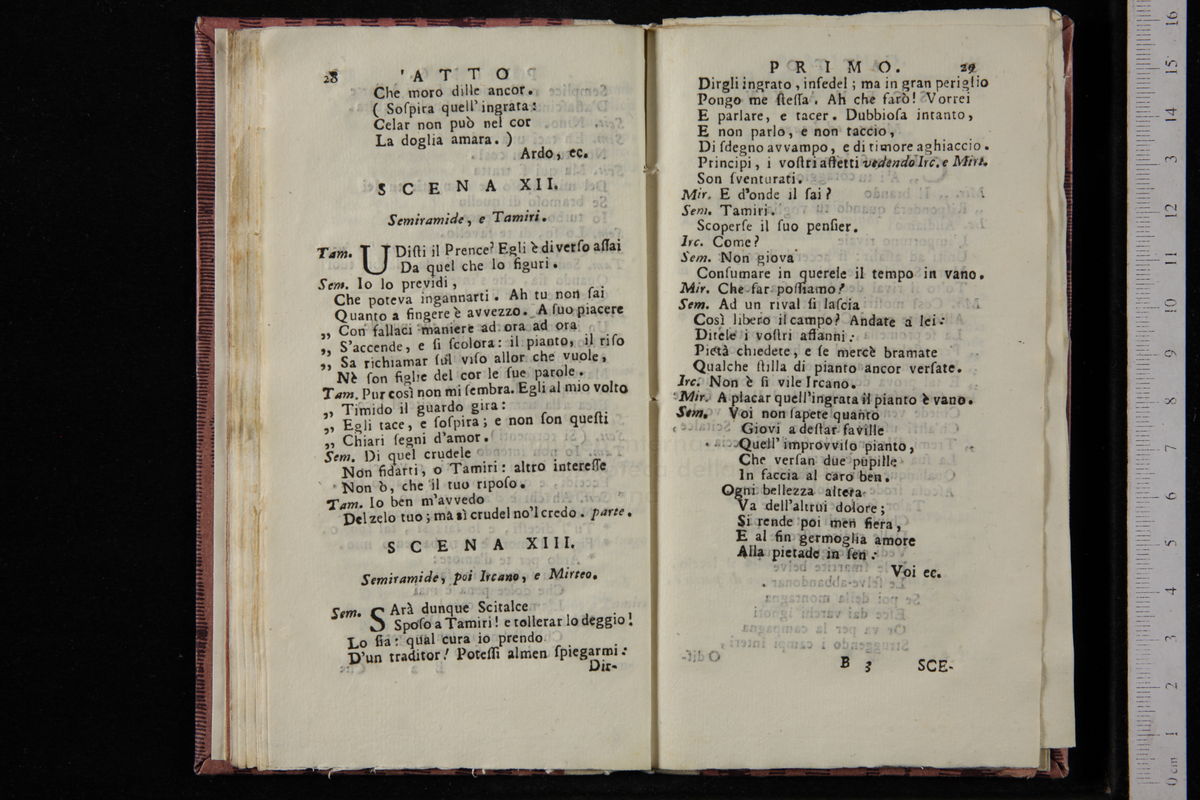 28 'ATTO
Che moro dille ancor.
( Soſpira quell' ingrata:
Celar non può nel cor
La doglia amara. )
Ardo, ec.
SCENA XII.
Semiramide, e Tamiri.
Tam. UDiſti il Prence? Egli è diverſo aſſai
Da quel che lo figuri.
Sem. Io lo previdi,
Che poteva ingannarti. Ah tu non ſai
Quanto a fingere è avvezzo. A ſuo piacere
„ Con fallaci maniere ad ora ad ora
„ S'accende, e ſi ſcolora: il pianto, il riſo
„ Sa richiamar ſul viſo allor che vuole,
Nè ſon figlie del cor le ſue parole.
Tam. Pur così non mi ſembra. Egli al mio volto
„ Timido il guardo gira:
„ Egli tace, e ſoſpira; e non ſon queſti
„ Chiari ſegni d'amor.
Sem. Di quel crudele
Non fidarti, o Tamiri: altro intereſſe
Non ò, che il tuo ripoſo.
Tam. Io ben m'avvedo
Del zelo tuo; ma sì crudel no'l credo. parte.
SCENA XIII.
Semiramide, poi Ircano, e Mirteo.
Sem. SArà dunque Scitalce
Spoſo a Tamiri! e tollerar lo deggio!
Lo ſia: qual cura io prendo
D'un traditor! Poteſſi almen ſpiegarmi:
Dir-
PRIMO. 29
Dirgli ingrato, infedel; ma in gran periglio
Pongo me ſteſſa. Ah che farò! Vorrei
E parlare, e tacer. Dubbioſa intanto,
E non parlo, e non taccio,
Di ſdegno avvampo, e di timore aghiaccio.
Principi, i voſtri affetti vedendo Irc. e Mirt.
Son ſventurati.
Mir. E d'onde il ſai?
Sem. Tamiri.
Scoperſe il ſuo penſier.
Irc. Come?
Sem. Non giova
Conſumare in querele il tempo in vano.
Mir. Che far poſſiamo?
Sem. Ad un rival ſi laſcia
Così libero il campo? Andate a lei:
Ditele i voſtri affanni:
Pietà chiedete, e ſe mercè bramate
Qualche ſtilla di pianto ancor verſate.
Irc. Non è ſi vile Ircano.
Mir. A placar quell'ingrata il pianto è vano.
Sem. Voi non ſapete quanto
Giovi a deſtar faville
Quell' improvviſo pianto,
Che verſan due pupille
In faccia al caro ben.
Ogni bellezza altera
Va dell'altrui dolore;
Si rende poi men fiera,
E al fin germoglia amore
Alla pietade in ſen:
Voi ec.
B 3 SCE-
0 cm 1 2 3 4 5 6 7 8 9 10 11 12 13 14 15 16